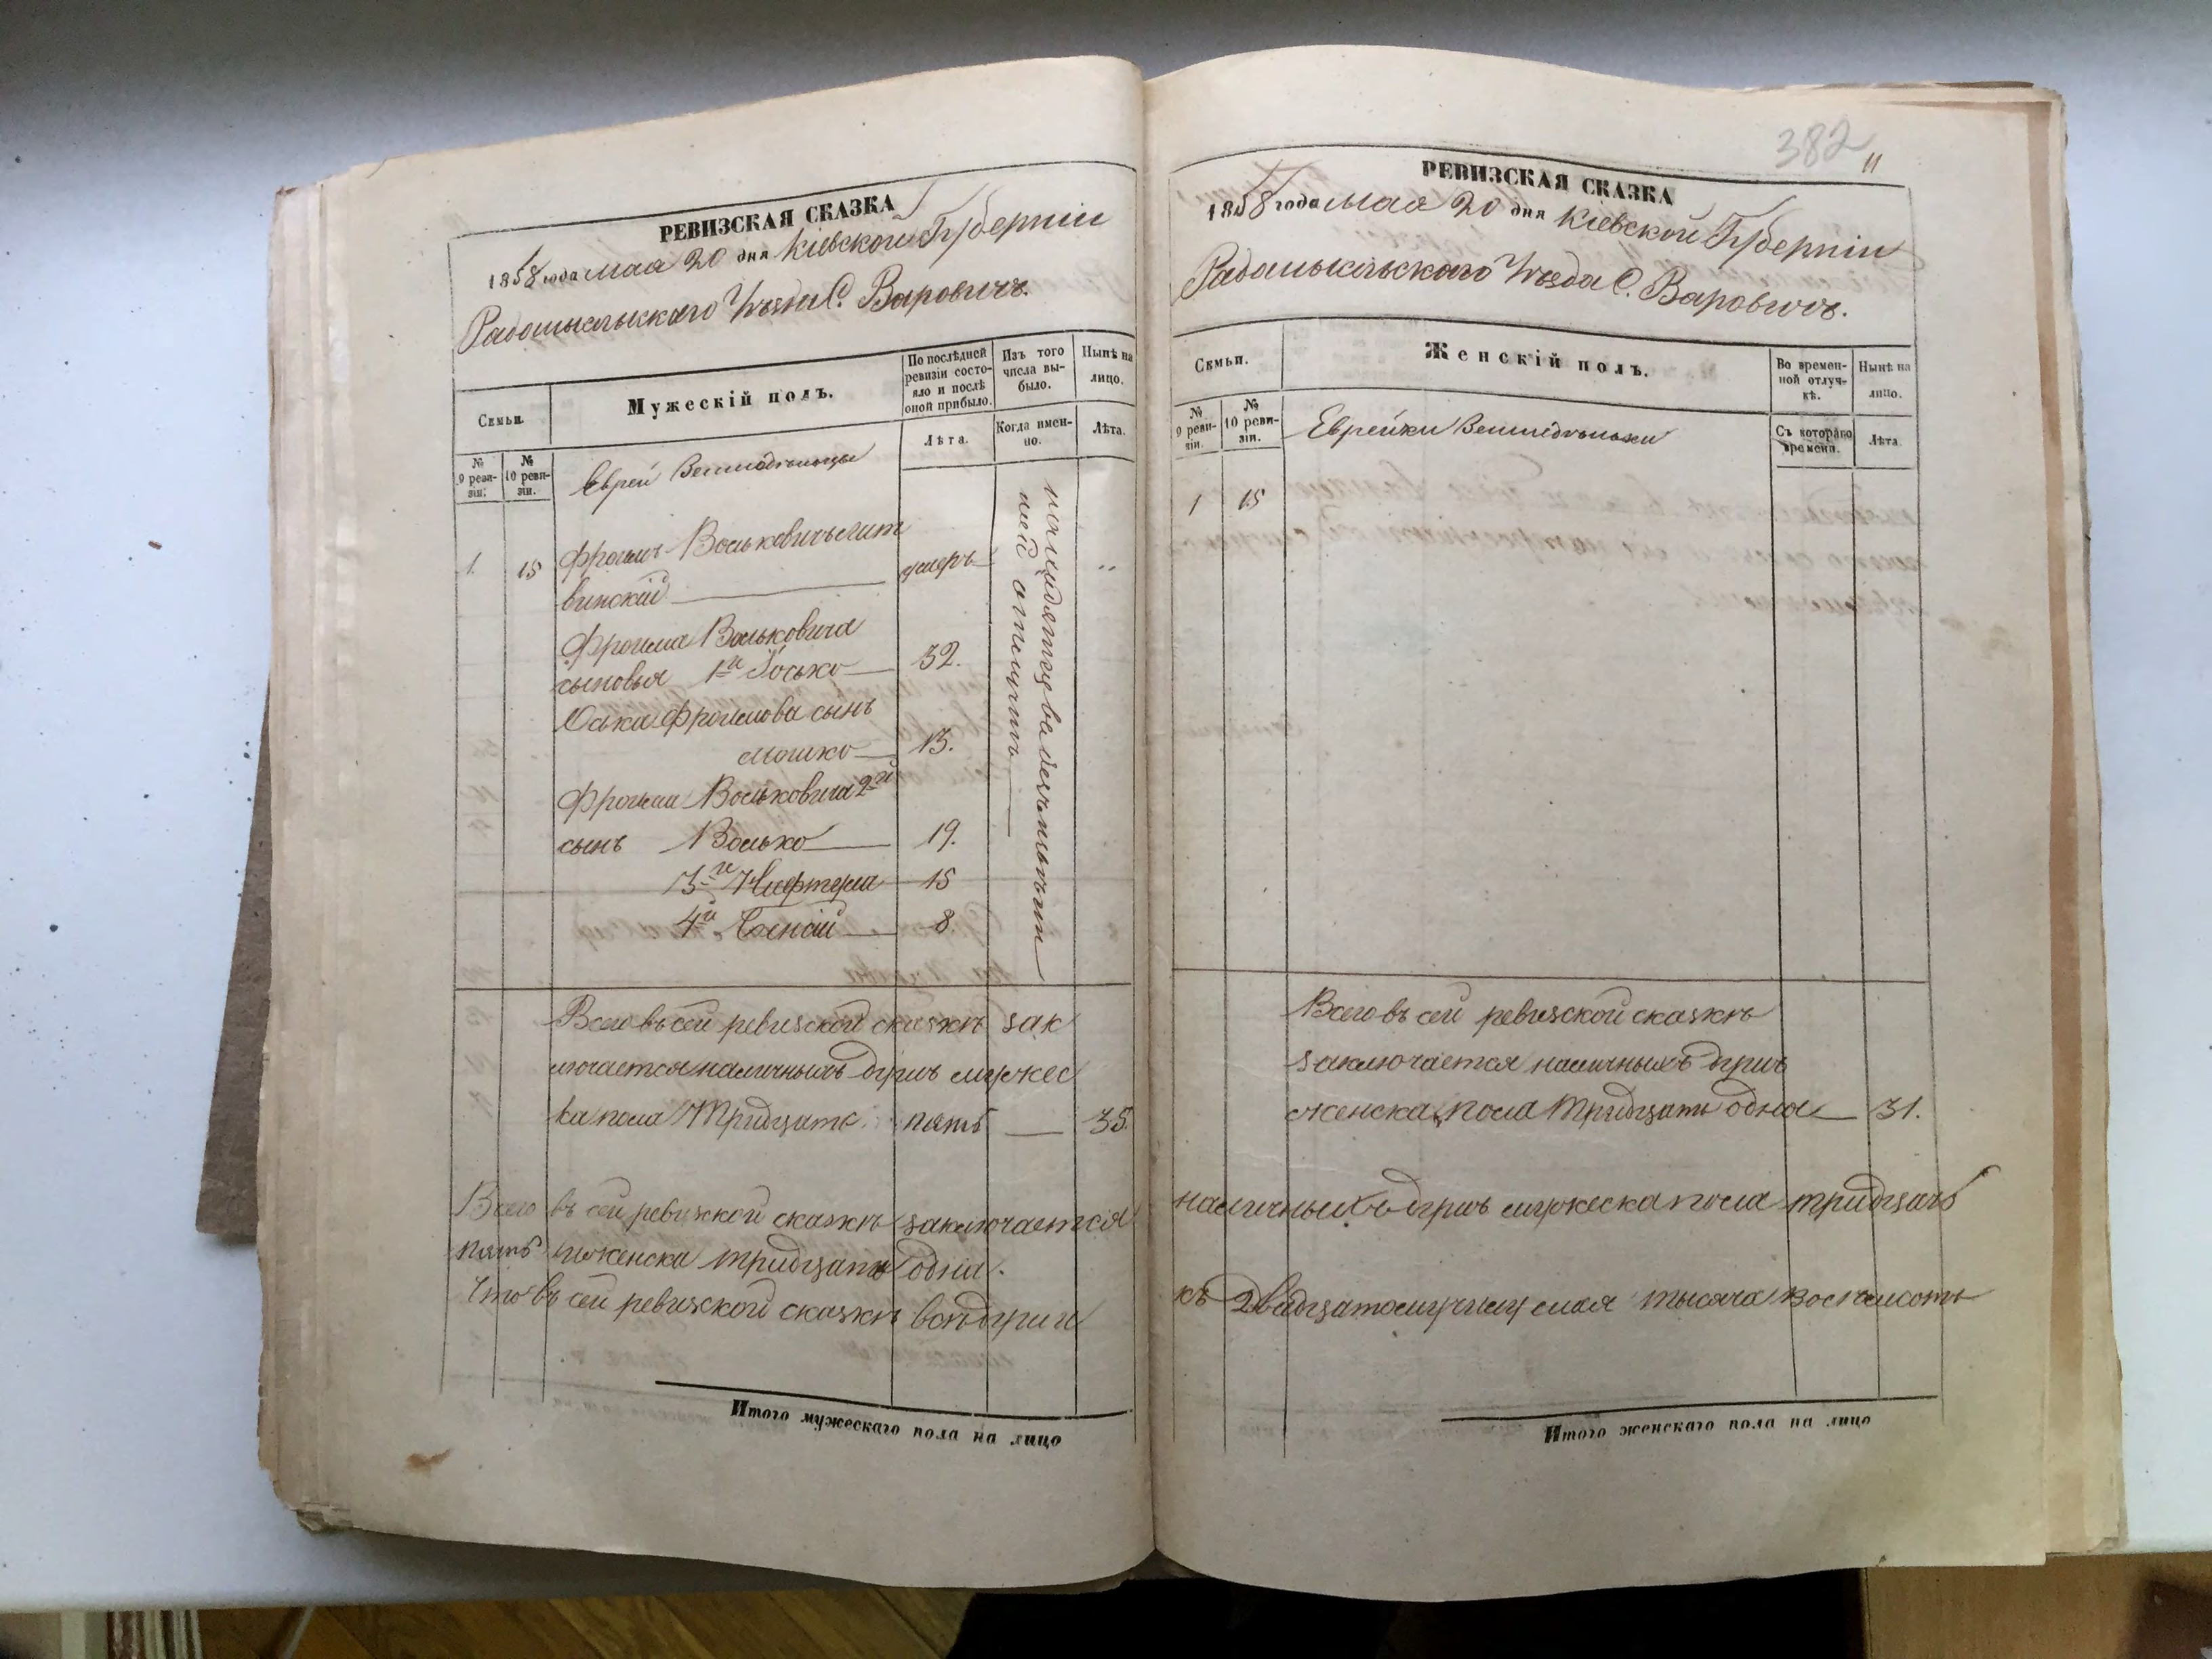 РЕВИЗСКАЯ СКАЗКА
1858 года мая 20 дня Кіевской Губерніи
Радомысльскаго Уѣзда С. Варовичъ.
Семьи.
Мужескій полъ.
По послѣдней ревизіи состояло и послѣ оной прибыло.
Изъ того числа выбыло.
Нынѣ на лицо.
№ 9 ревизіи.
№ 10 ревизіи.
Лѣта.
Когда именно.
Лѣта.
Евреи Земледѣльцы
1. 15 Фроимъ Волькович
винскій умеръ „
Фроима Вольковича
сыновья 1й Іосько 32.
Оська Фроимова сынъ
Мошко 13.
Фроима Вольковича 2й
сынъ Волько 19.
3й 15
4й 8
Всего въ сей ревизской сказкѣ зак
лючается наличныхъ душъ мужес
ка пола Тридцать пять 35.
Всего въ сей ревизской сказкѣ заключается
пять женска тридцать одна.
Что въ сей ревизской сказкѣ всѣ души
Итого мужескаго пола на лицо
382
11
РЕВИЗСКАЯ СКАЗКА
1858 года мая 20 дня Кіевской Губерніи
Радомысльскаго Уѣзда С. Варовичъ.
Семьи.
Женскій полъ.
Во временной отлучкѣ.
Нынѣ на лицо.
№ 9 ревизіи.
№ 10 ревизіи.
Съ котораго времени.
Лѣта.
Еврейки Земледѣльки
1 15
Всего въ сей ревизской сказкѣ
заключается наличныхъ душъ
женска пола Тридцать одна 31.
наличныхъ душъ мужеска пола тридцать
къ двадцатому числу мая тысяча восемьсотъ
Итого женскаго пола на лицо